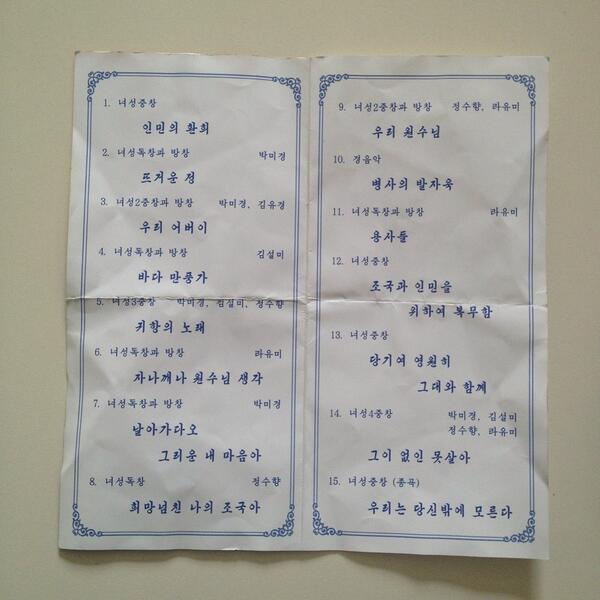 1. 녀성중창
인민의 환희
2. 녀성독창과 방창 박미경
뜨거운 정
3. 녀성2중창과 방창 박미경, 김유경
우리 어버이
4. 녀성독창과 방창 김설미
바다 만풍가
5. 녀성3중창 박미경, 김설미, 정수향
귀항의 노래
6. 녀성독창과 방창 라유미
자나깨나 원수님 생각
7. 녀성독창과 방창 박미경
날아가다오
그리운 내 마음아
8. 녀성독창 정수향
희망넘친 나의 조국아
9. 녀성2중창과 방창 정수향, 라유미
우리 원수님
10. 경음악
병사의 발자욱
11. 녀성독창과 방창 라유미
용사들
12. 녀성중창
조국과 인민을
위하여 복무함
13. 녀성중창
당기여 영원히
그대와 함께
14. 녀성4중창 박미경, 김설미
정수향, 라유미
그이 없인 못살아
15. 녀성중창 (종곡)
우리는 당신밖에 모른다